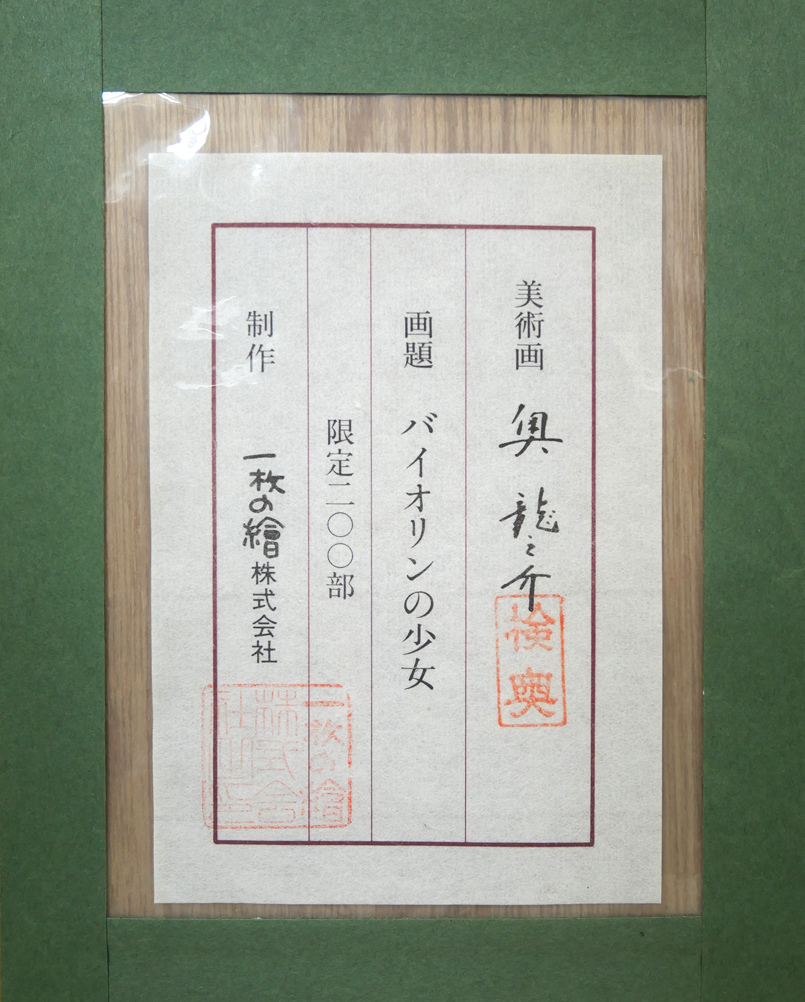 美術画 奥龍之介
検奥
画題 バイオリンの少女
限定二〇〇部
制作 一枚の繪株式会社
一枚の繪
株式会
社之印